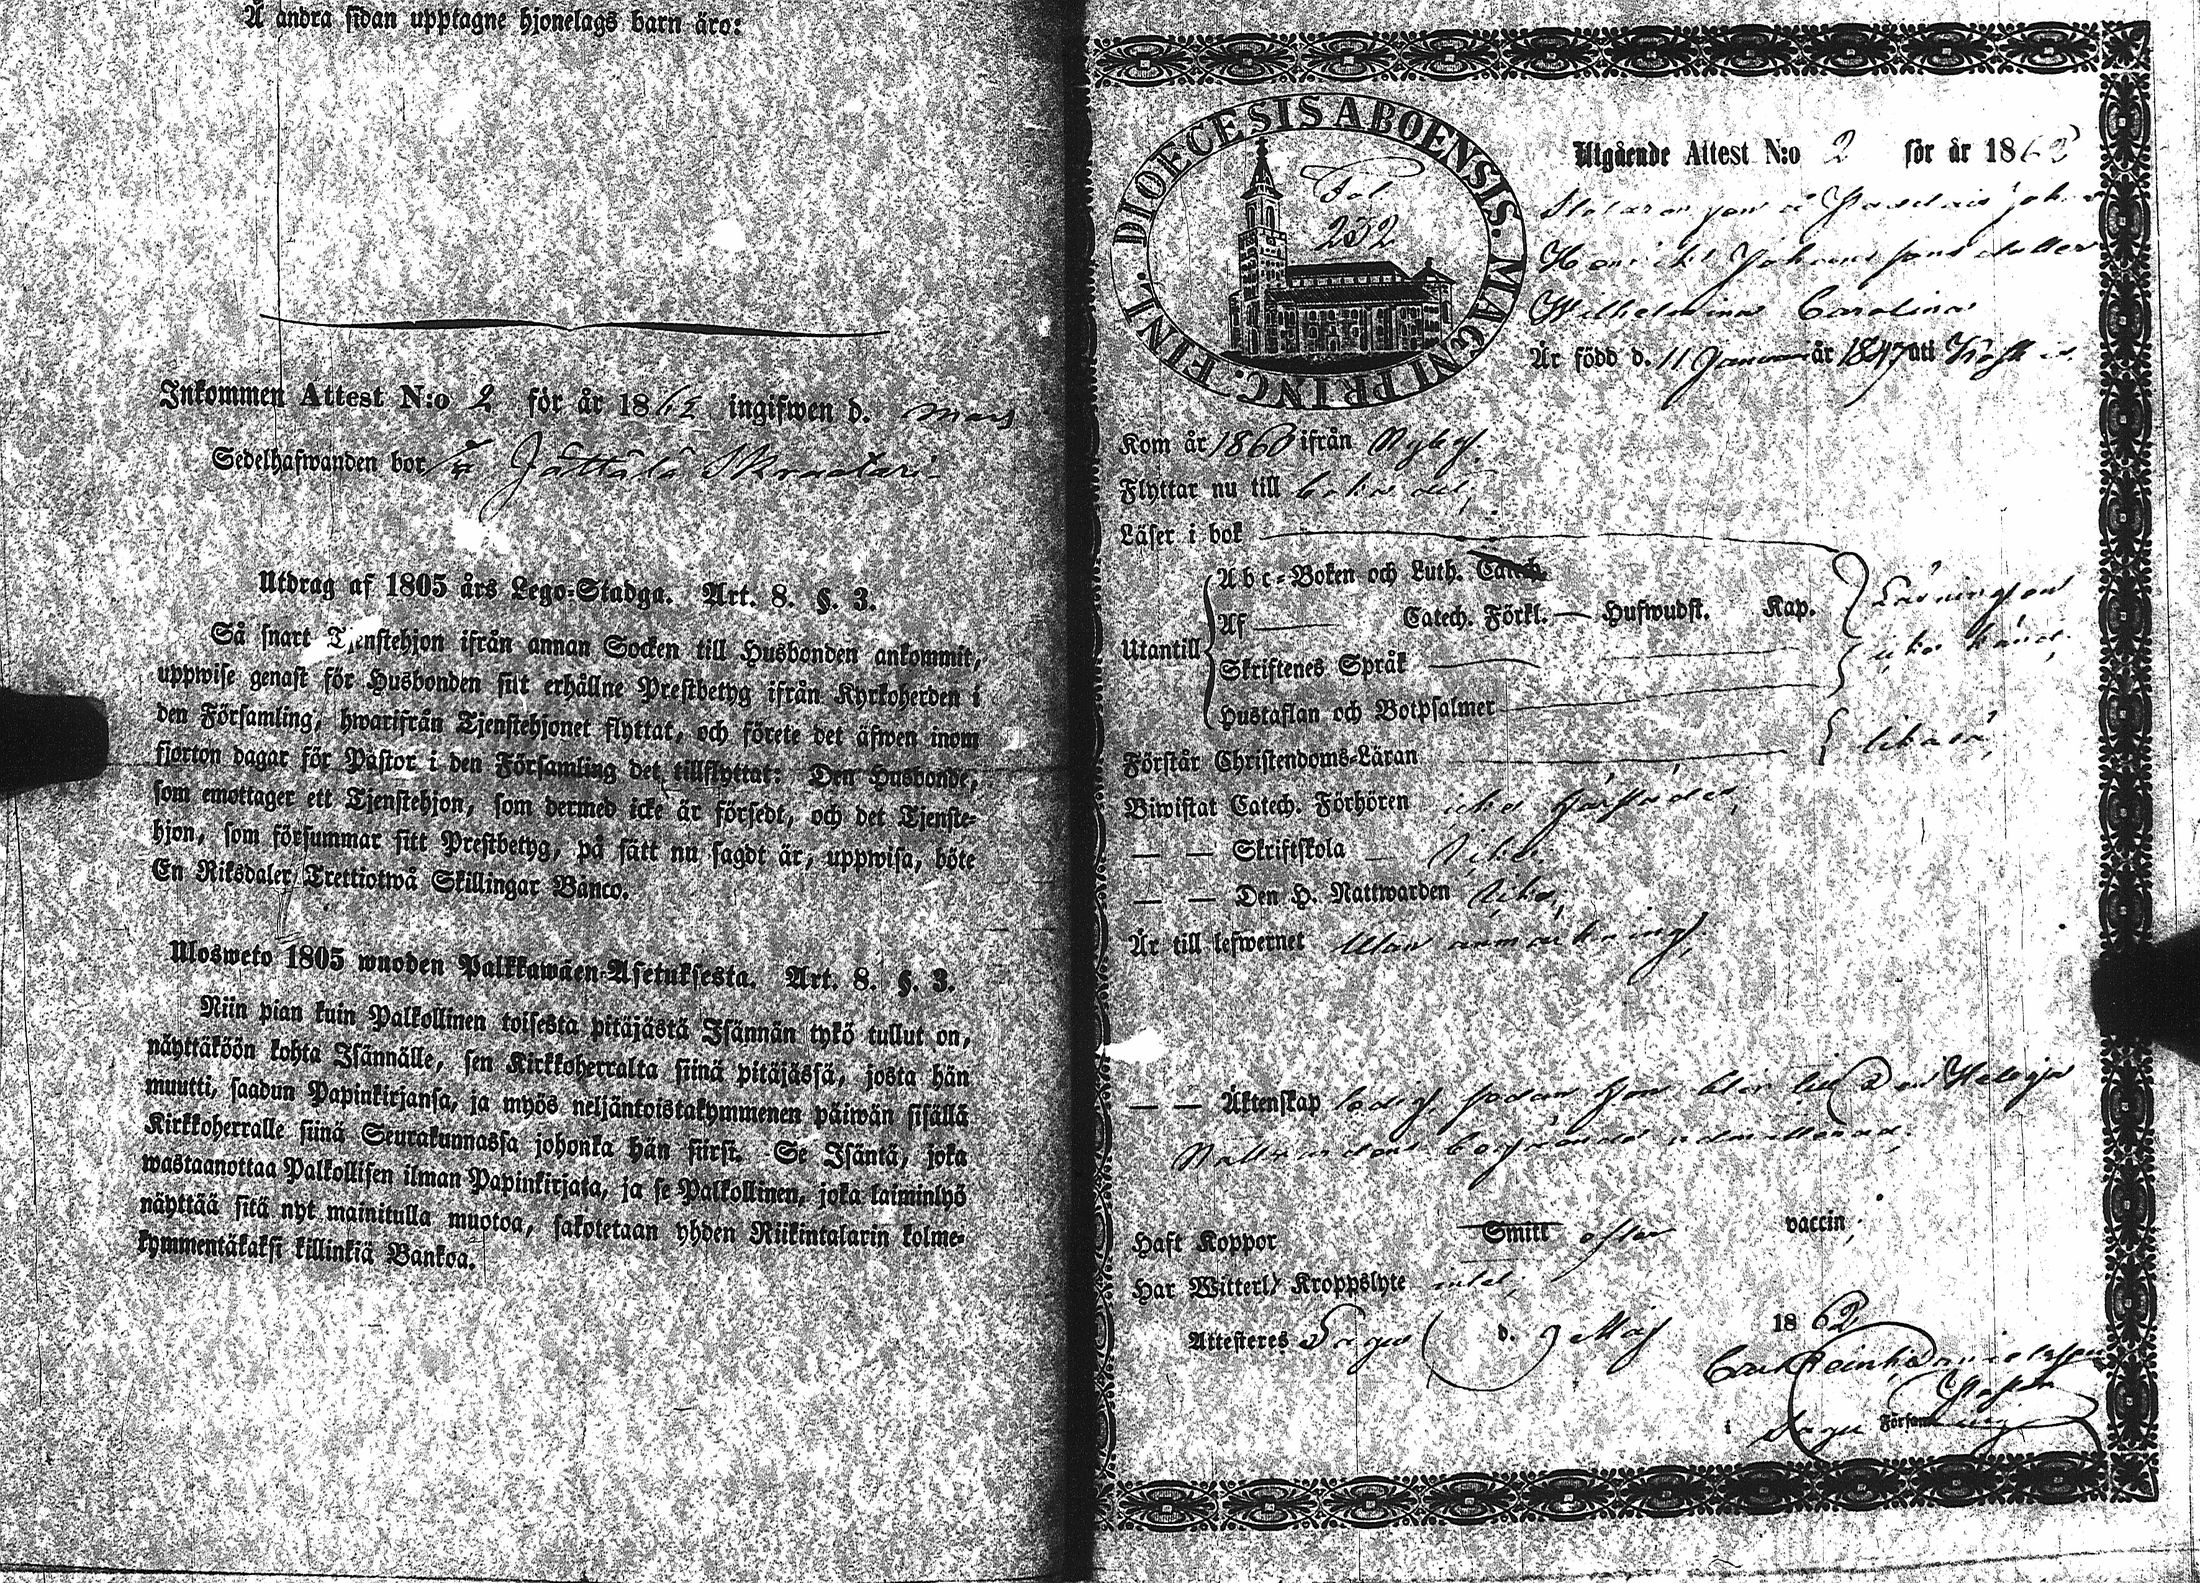 Å andra sidan upptagne hjonelags barn äro:
Inkommen Attest N:o 2 för år 1862 ingifwen d. Mars
Sedelhafwanden bor
Utdrag af 1805 års Lego-Stadga. Art. 8. §. 3.
Så snart Tjenstehjon ifrån annan Socken till Husbonden ankommit,
uppwise genast för Husbonden sitt erhållne Prestbetyg ifrån Kyrkoherden i
den Församling, hwarifrån Tjenstehjonet flyttat, och förete det äfwen inom
fjorton dagar för Pastor i den Församling det tillflyttat: Den Husbonde,
som emottager ett Tjenstehjon, som dermed icke är försedt, och det Tjenste-
hjon, som försummar sitt Prestbetyg, på sätt nu sagdt är, uppwisa, böte
En Riksdaler Trettiotwå Skillingar Banco.
Ulosweto 1805 wuoden Palkkawäen-Asetuksesta. Art. 8. §. 3.
Niin pian kuin Palkollinen toisesta pitäjästä Isännän tykö tullut on,
näyttäköön kohta Isännälle, sen Kirkkoherralta siinä pitäjässä, josta hän
muutti, saadun Papinkirjansa, ja myös neljäntoistakymmenen päiwän sisällä
Kirkkoherralle siinä Seurakunnassa johonka hän siirsi. Se Isäntä, joka
wastaanottaa Palkollisen ilman Papinkirjata, ja se Palkollinen, joka laiminlyö
näyttää sitä nyt mainitulla muotoa, sakotetaan yhden Riikintalarin kolme-
kymmentäkaksi killinkiä Bankoa.
DIOECESIS ABOENSIS. MAGNI PRINC. FINL.
Fol
232
Utgående Attest N:o 2 för år 1862
Henrik Johanssons dotter
Wilhelmina Carolina
Är född d. 11 Januari år 1847 uti
Kom år 1860 ifrån Nyby
Flyttar nu till
Läser i bok
Utantill
Abc-Boken och Luth. Catech.
Af Catech. Förkl. Hufwudst. Kap.
Skriftenes Språk
Hustaflan och Botpsalmer
Läsningen
icke känd
Förstår Christendoms-Läran likaså,
Biwistat Catech. Förhören icke
— — Skriftskola icke
— — Den H. Nattwarden icke,
Är till lefwernet Utan anmärkning,
— — Äktenskap ledig, sedan hon blir till Den Heliga
Nattvardens begående admitterad;
Haft Koppor Smitt efter vaccin;
Har Witterl. Kroppslyte intet;
Attesteres Sagu d. 9 Maj 1862
Pastor
i Sagu Församling